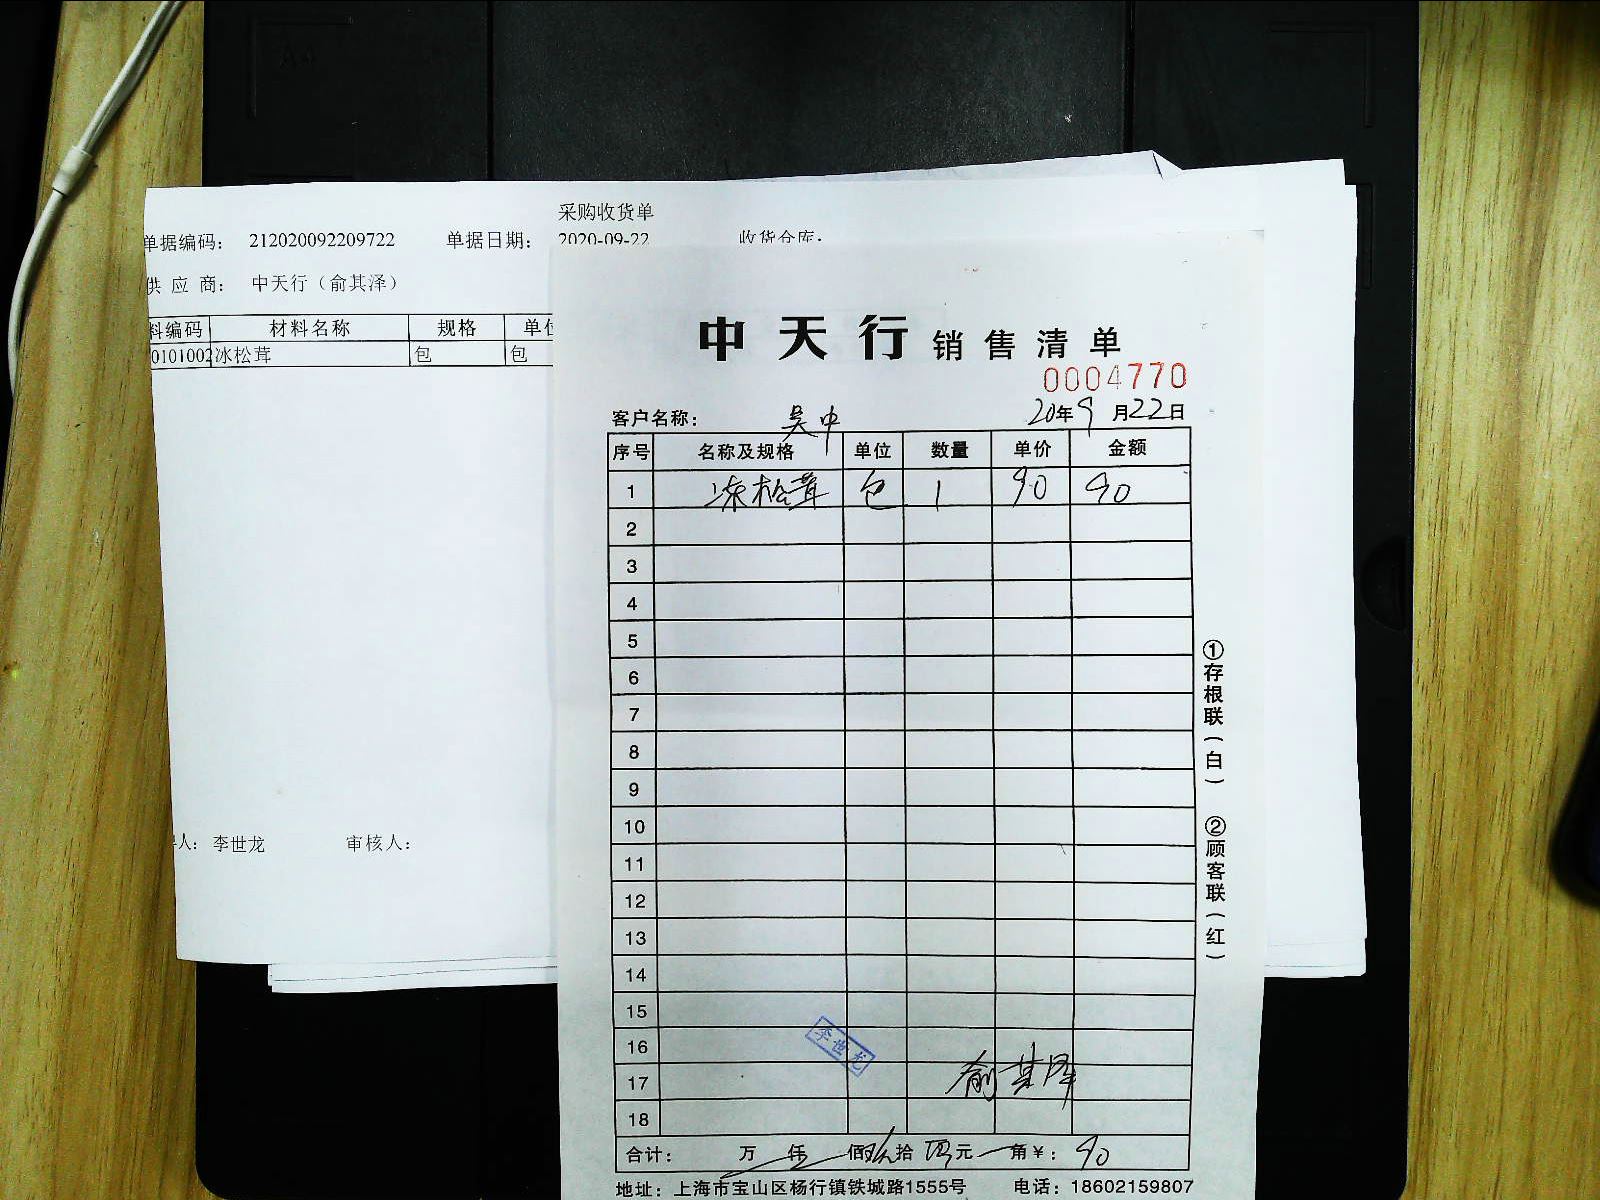 采购收货单
单据编码： 212020092209722 单据日期： 2020-09-22 收货仓库：
供 应 商： 中天行（俞其泽）
料编码 材料名称 规格 单位
0101002 冰松茸 包 包
李世龙 审核人：
中天行 销售清单
0004770
客户名称： 吴中 20年9月22日
序号 名称及规格 单位 数量 单价 金额
1 冻松茸 包 1 90 90
2
3
4
5
6
7
8
9
10
11
12
13
14
15
16
17
18
李世龙
俞其泽
合计： 万 仟 佰 玖拾 元 角 ￥： 90
地址：上海市宝山区杨行镇铁城路1555号 电话：18602159807
①存根联（白） ②顾客联（红）